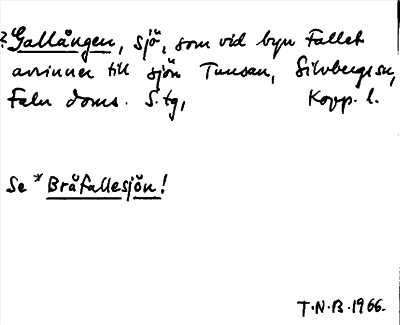 ? Gallången, sjö, som vid byn Fallet
avrinner till sjön Tunsan, Silvbergs sn,
Falu doms. S. tg, Kopp. l.
Se *Bråfallesjön!
T.N.B. 1966.